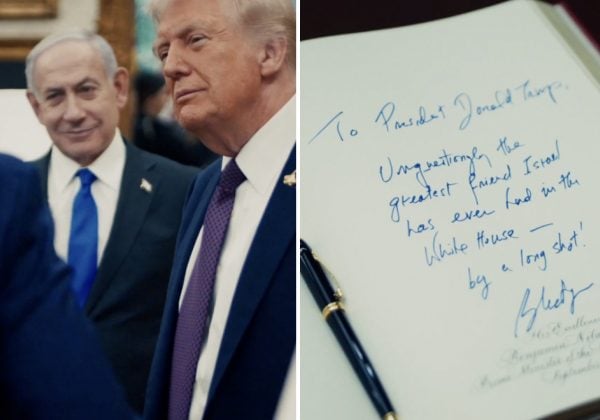 To President Donald Trump,
Unquestionably the
greatest friend Israel
has ever had in the
White House —
by a long shot!
His Excellency
Benjamin
Prime Minister of the
September